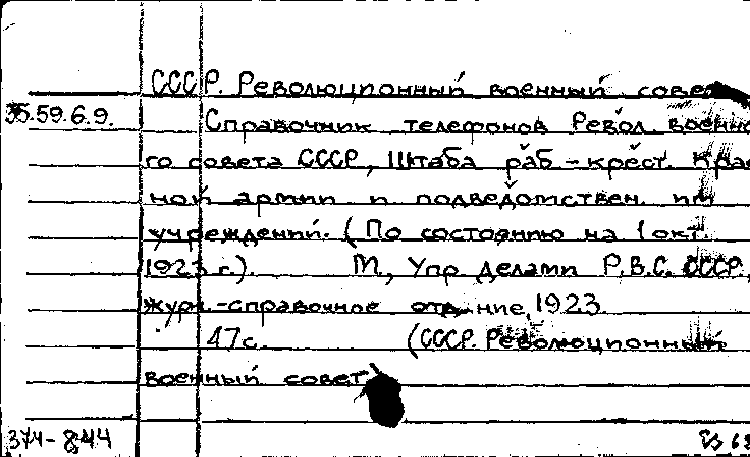 СССР. Революционный военный совет
35.59.6.9. Справочник телефонов Револ. военно
го совета СССР, Штаба раб-крест. Крас
ной армии и подведомствен. им
учреждений. (По состоянию на 1 окт.
1923 г.). М., Упр. делами Р.В.С. СССР,
журн.-справочное отд-ние, 1923.
47 с. (СССР. Революционный
военный совет)
374-844